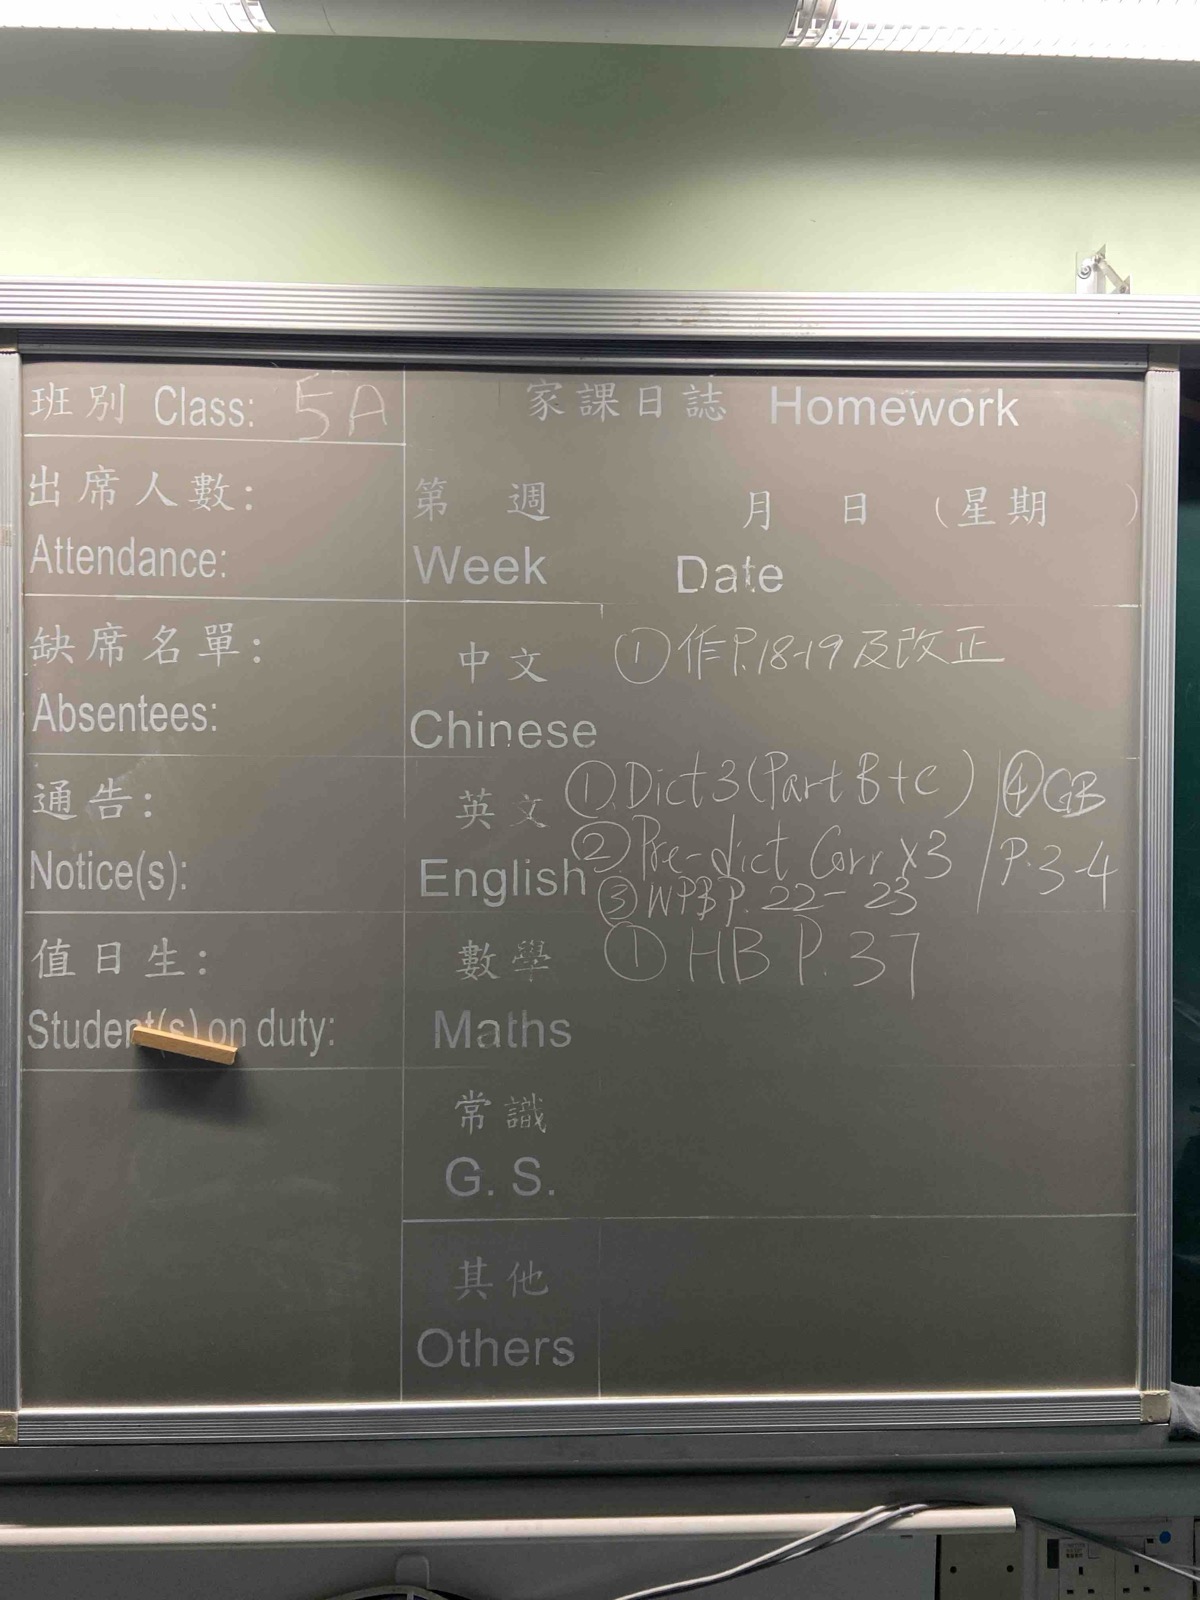 班別 Class: 5A
家課日誌 Homework
出席人數:
Attendance:
第 週 月 日 (星期 )
Week Date
缺席名單:
Absentees:
中文 ①作P.18-19及改正
Chinese
通告:
Notice(s):
英文 ①Dict 3 (Part B+C)
②Pre-dict Corr x3
English ③WPB P. 22-23
④GB
P.3-4
值日生:
Student(s) on duty:
數學 ① HB P. 37
Maths
常識
G. S.
其他
Others